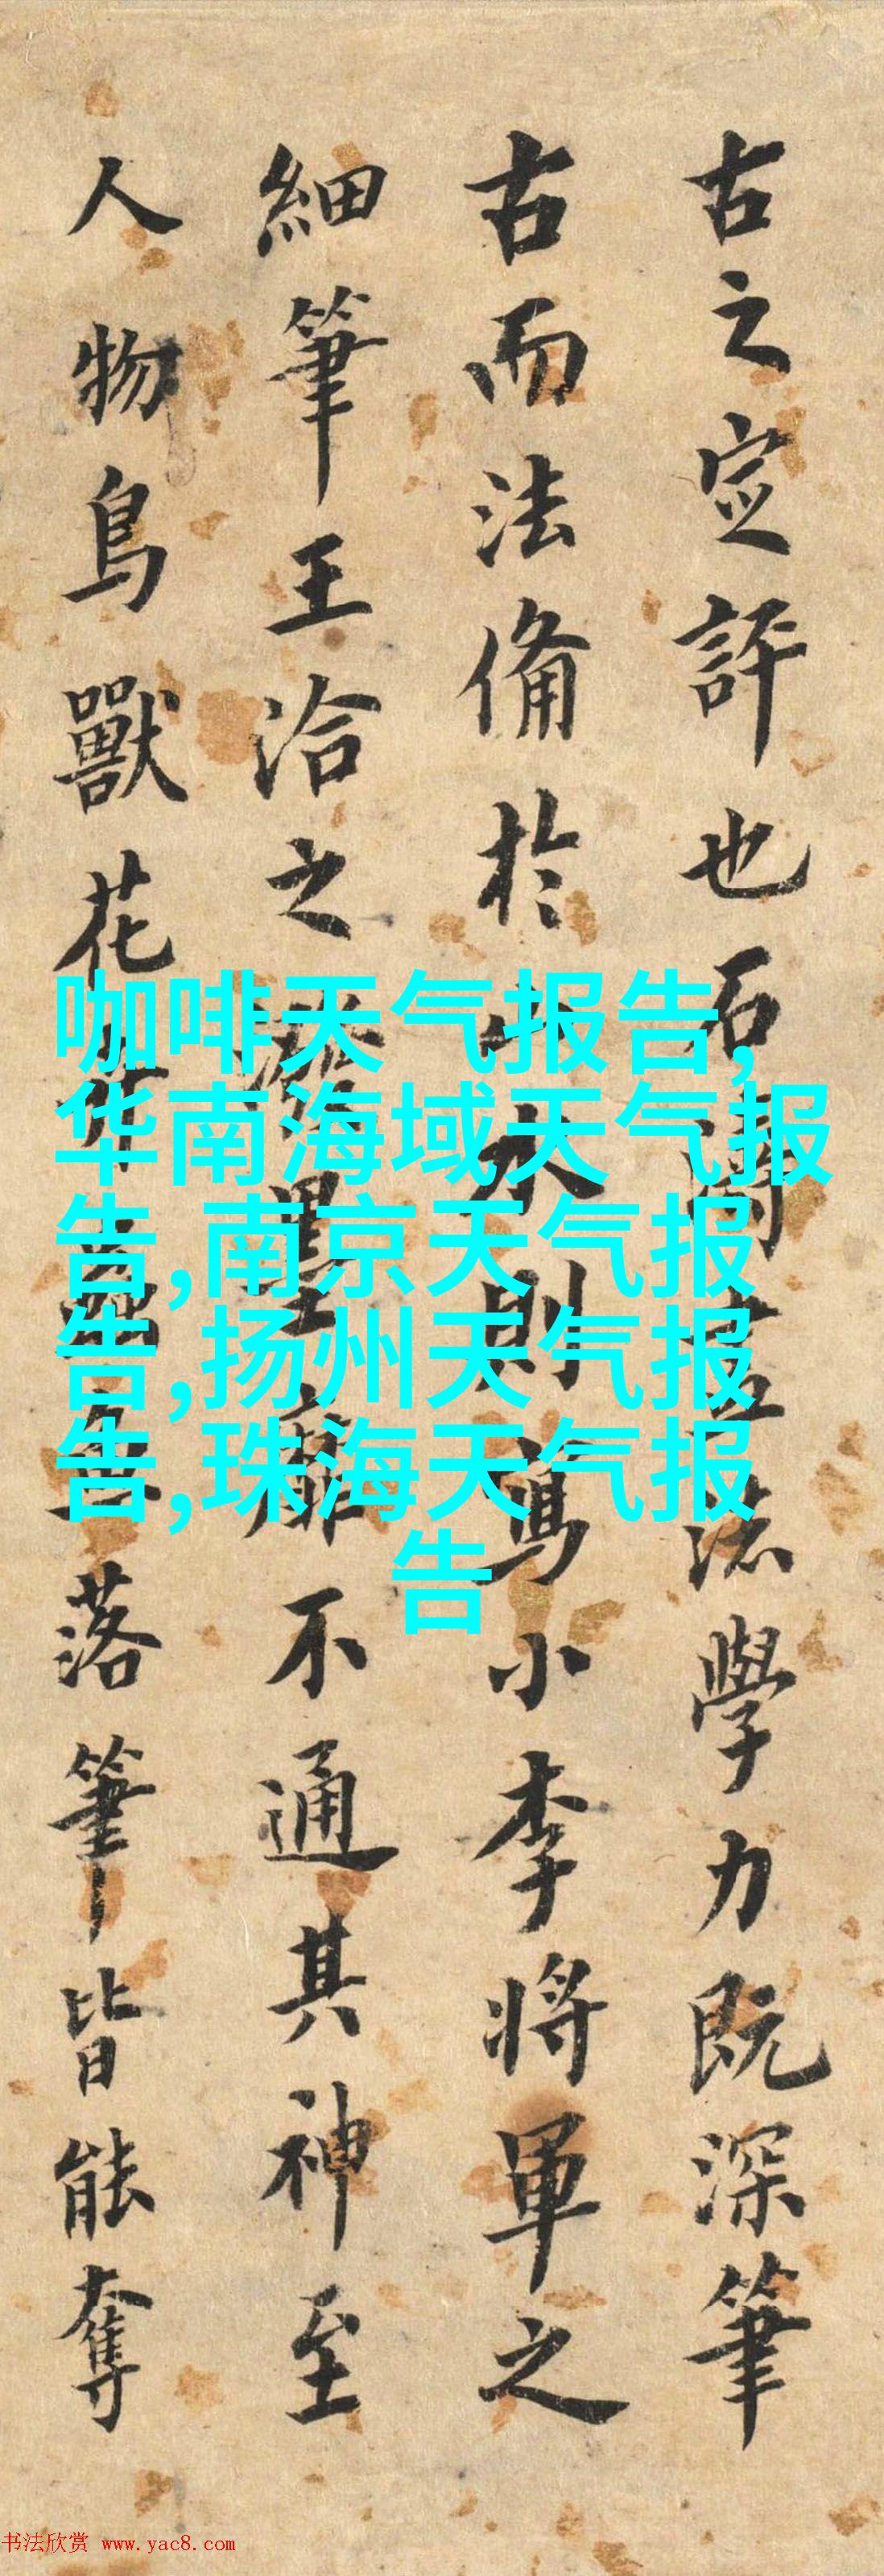 古之定評也石濤法學力既深筆
古而法備於山水則寫小李將軍之
細筆王洽之潑墨靡不通其神至
人物鳥獸花卉蟲魚落筆皆能奪
咖啡天气报告,
华南海域天气报
告,南京天气报
告,扬州天气报
告,珠海天气报
告
书法欣赏 www.yac8.com